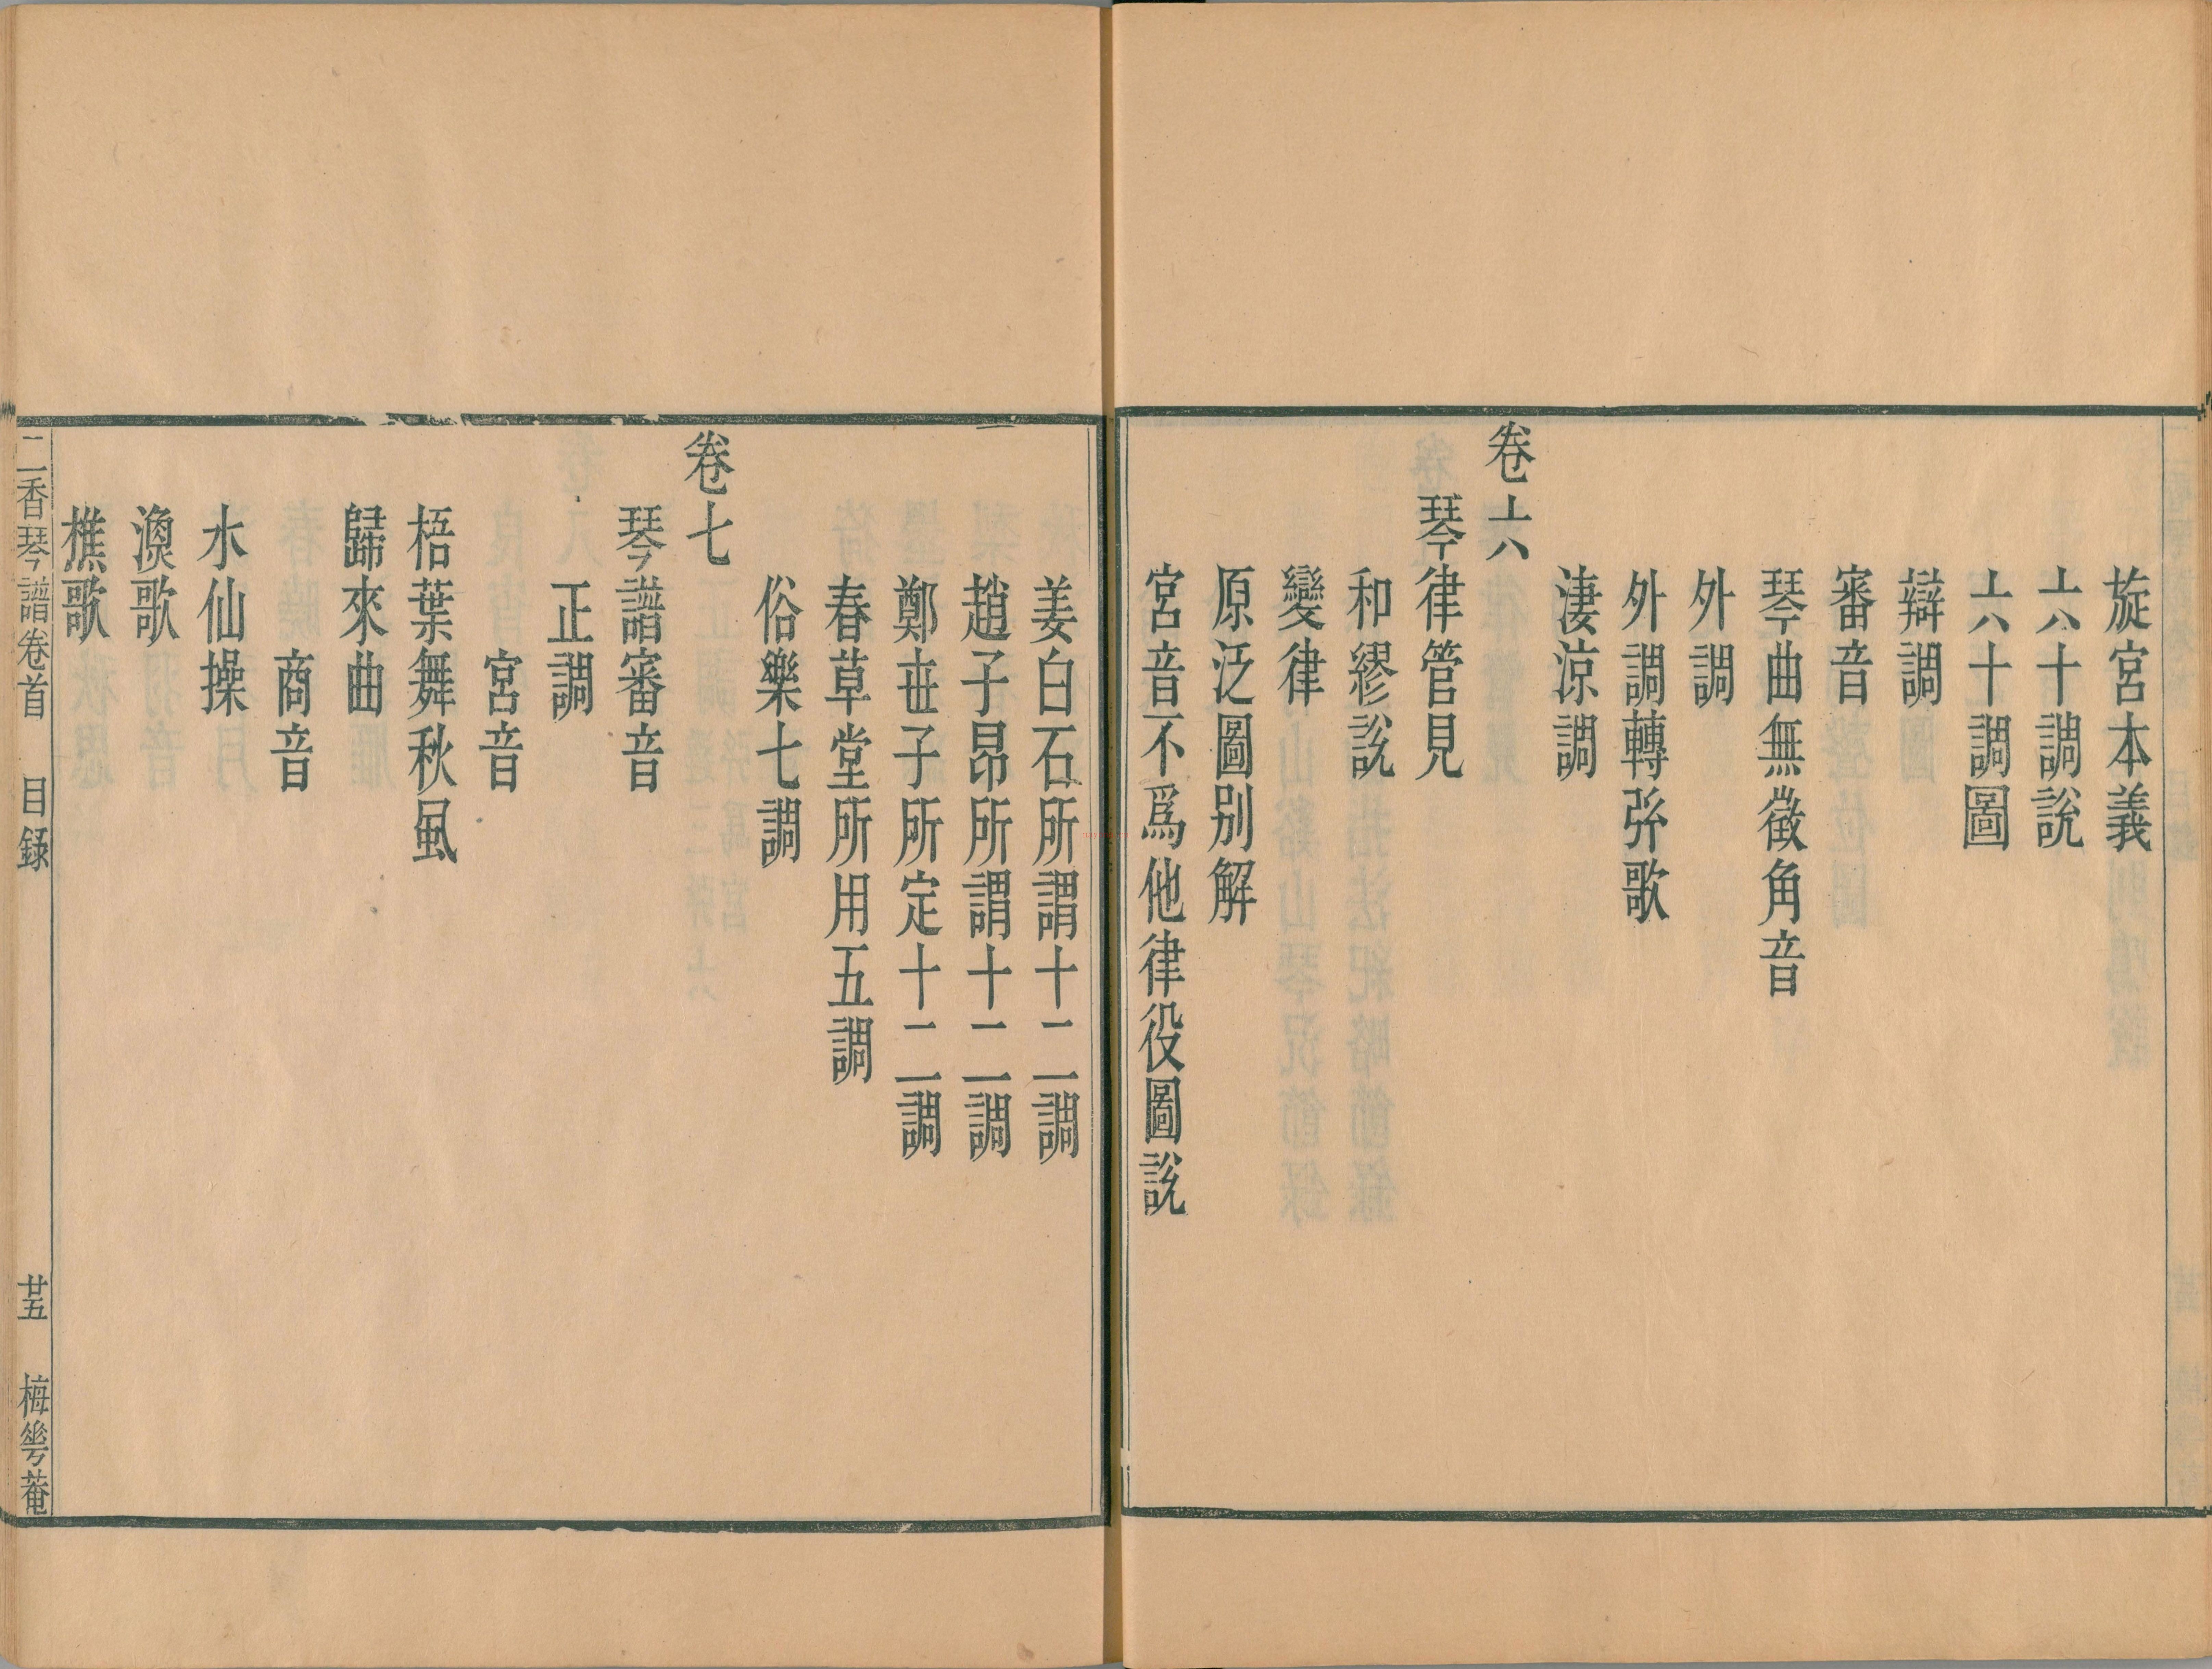 旋宮本義
六十調說
六十調圖
辯調
審音
琴曲無徵角音
外調
外調轉弦歌
淒涼調
卷六
琴律管見
和繆說
變律
原泛圖别解
宮音不爲他律役圖說
姜白石所謂十二調
趙子昂所謂十二調
鄭世子所定十二調
春草堂所用五調
俗樂七調
卷七
琴譜審音
正調
宮音
梧葉舞秋風
歸來曲
商音
水仙操
漁歌
樵歌
二香琴譜卷首 目錄 廿五 梅琴菴